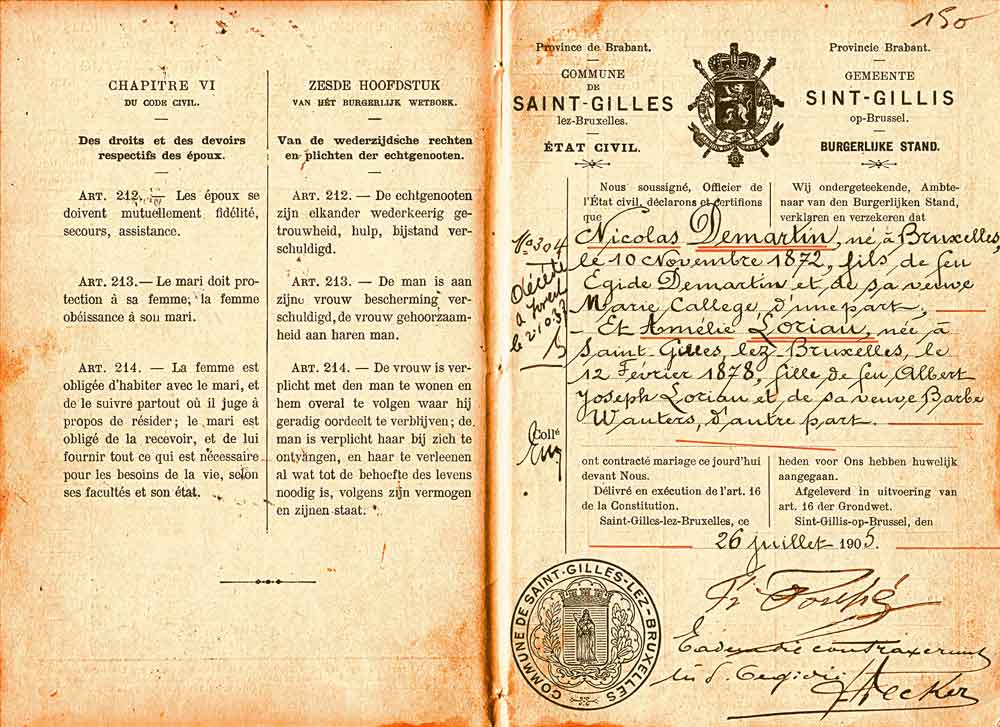 CHAPITRE VI
DU CODE CIVIL.
Des droits et des devoirs
respectifs des époux.
ART. 212. — Les époux se
doivent mutuellement fidélité,
secours, assistance.
ART. 213. — Le mari doit pro-
tection à sa femme, la femme
obéissance à son mari.
ART. 214. — La femme est
obligée d'habiter avec le mari, et
de le suivre partout où il juge à
propos de résider; le mari est
obligé de la recevoir, et de lui
fournir tout ce qui est nécessaire
pour les besoins de la vie, selon
ses facultés et son état.
ZESDE HOOFDSTUK
VAN HET BURGERLIJK WETBOEK.
Van de wederzijdsche rechten
en plichten der echtgenooten.
ART. 212. — De echtgenooten
zijn elkander wederkeerig ge-
trouwheid, hulp, bijstand ver-
schuldigd.
ART. 213. — De man is aan
zijne vrouw bescherming ver-
schuldigd, de vrouw gehoorzaam-
heid aan haren man.
ART. 214. — De vrouw is ver-
plicht met den man te wonen en
hem overal te volgen waar hij
geradig oordeelt te verblijven; de
man is verplicht haar bij zich te
ontvangen, en haar te verleenen
al wat tot de behoefte des levens
noodig is, volgens zijn vermogen
en zijnen staat.
150
Province de Brabant.
COMMUNE
DE
SAINT-GILLES
lez-Bruxelles.
ÉTAT CIVIL.
Provincie Brabant.
GEMEENTE
SINT-GILLIS
op-Brussel.
BURGERLIJKE STAND.
Nous soussigné, Officier de
l'État civil, déclarons et certifions
que
Wij ondergeteekende, Ambte-
naar van den Burgerlijken Stand,
verklaren en verzekeren dat
No 304
Décédé
à Forest
le 2.10.37
Nicolas Demartin, né à Bruxelles,
le 10 Novembre 1872, fils de feu
Egide Demartin et de sa veuve
Marie Callege, d'une part,
— Et Amélie Lorian, née à
Saint-Gilles, lez-Bruxelles, le
12 Février 1878, fille de feu Albert
Joseph Lorian et de sa veuve Barbe
Wauters, d'autre part.
Collé
ont contracté mariage ce jourd'hui
devant Nous.
Délivré en exécution de l'art. 16
de la Constitution.
Saint-Gilles-lez-Bruxelles, ce
heden voor Ons hebben huwelijk
aangegaan.
Afgeleverd in uitvoering van
art. 16 der Grondwet.
Sint-Gillis-op-Brussel, den
26 juillet 1905.
COMMUNE DE SAINT-GILLES-LEZ-BRUXELLES
Eadem die contraxerunt